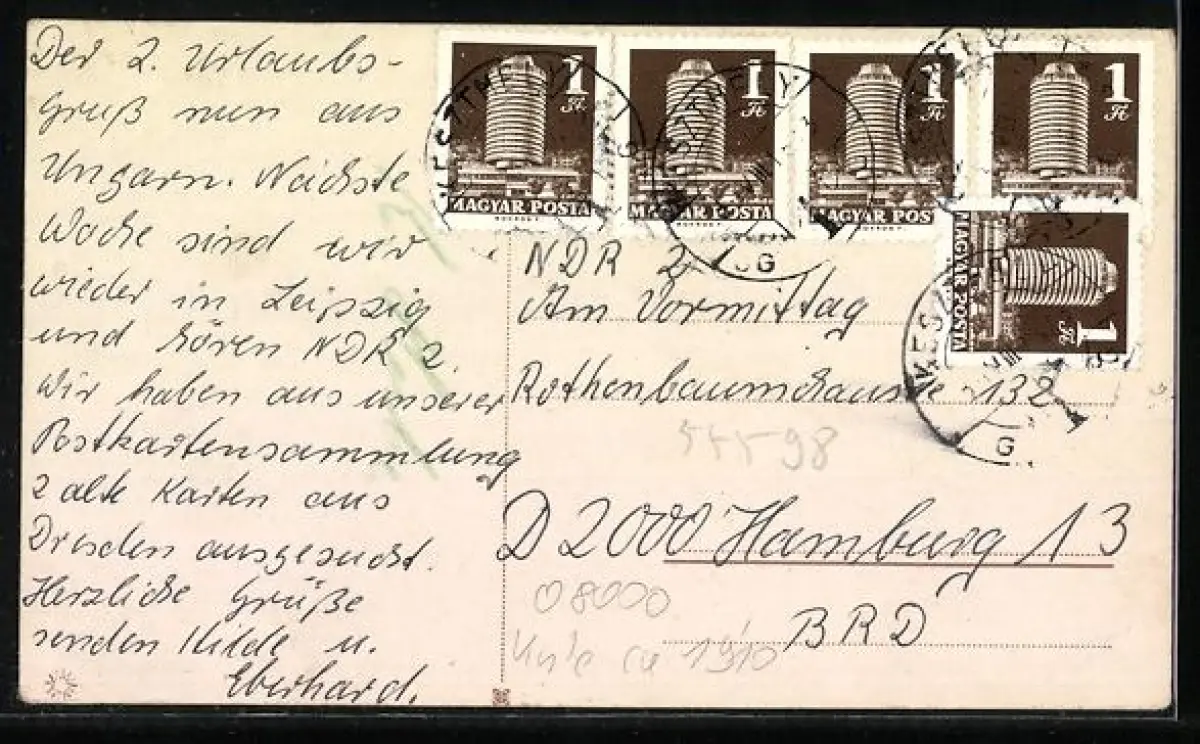 Der 2. Urlaubs-
gruß nun aus
Ungarn. Nächste
Woche sind wir
wieder in Leipzig
und hören NDR 2.
Wir haben aus unserer
Postkartensammlung
2 alte Karten aus
Dresden ausgesucht.
Herzliche Grüße
senden Hilde u.
Eberhard.
1 Ft
MAGYAR POSTA
1 Ft
MAGYAR POSTA
1 Ft
MAGYAR POSTA
1 Ft
1 Ft
MAGYAR POSTA
NDR 2
Am Vormittag
Rothenbaumchaussee 132
D 2000 Hamburg 13
08000
BRD
ca 1910
G
G